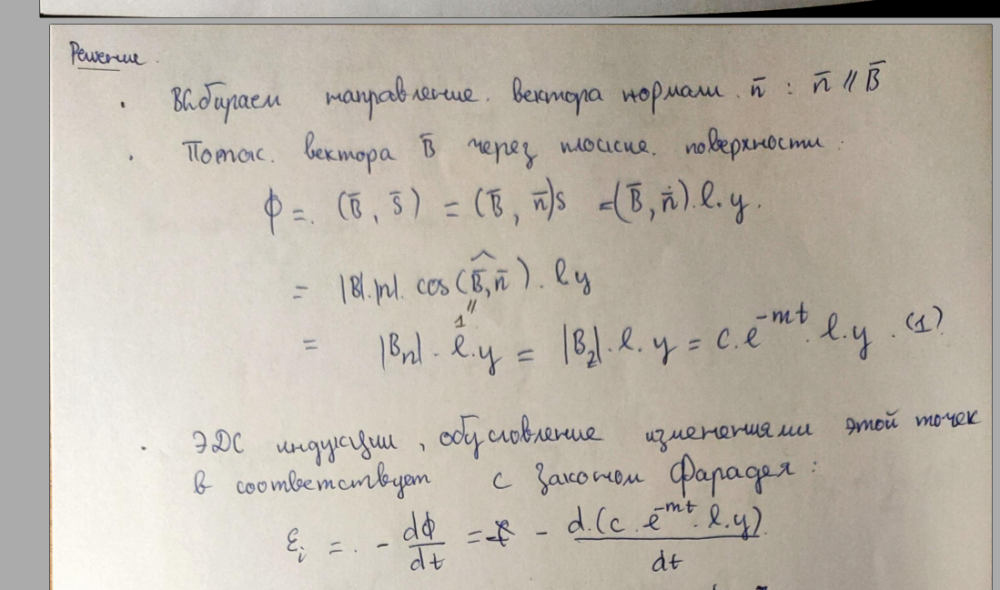 Решение.
• Выбираем направление. вектора нормали. n̄ : n̄ // B̄
• Поток. вектора B̄ через плоские. поверхности:
ϕ =. (B̄, S̄) = (B̄, n̄)S = (B̄, n̄). l. y.
= |B|.|n|. cos(B̄, n̄). l y
1"
= |Bn|. l. y = |B₂|. l. y = c. e^-mt. l. y. (1)
• ЭДС индукции, обусловление изменениями этой точек
в соответствует с законом Фарадея:
εi = . - dϕ/dt = - d.(c. e^-mt. l. y)/dt